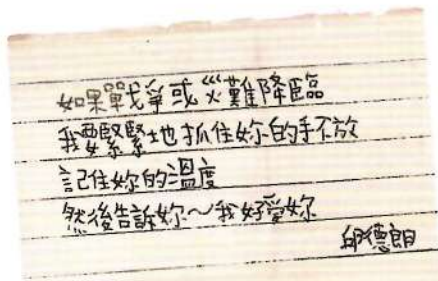 如果戰爭或災難降臨
我要緊緊地抓住妳的手不放
記住妳的溫度
然後告訴妳～我好愛妳
邱德朗